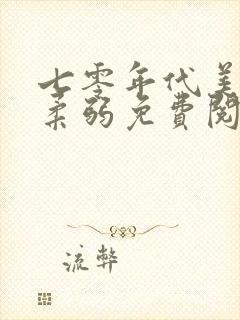 七零年代美
柔弱免费阅
流弊